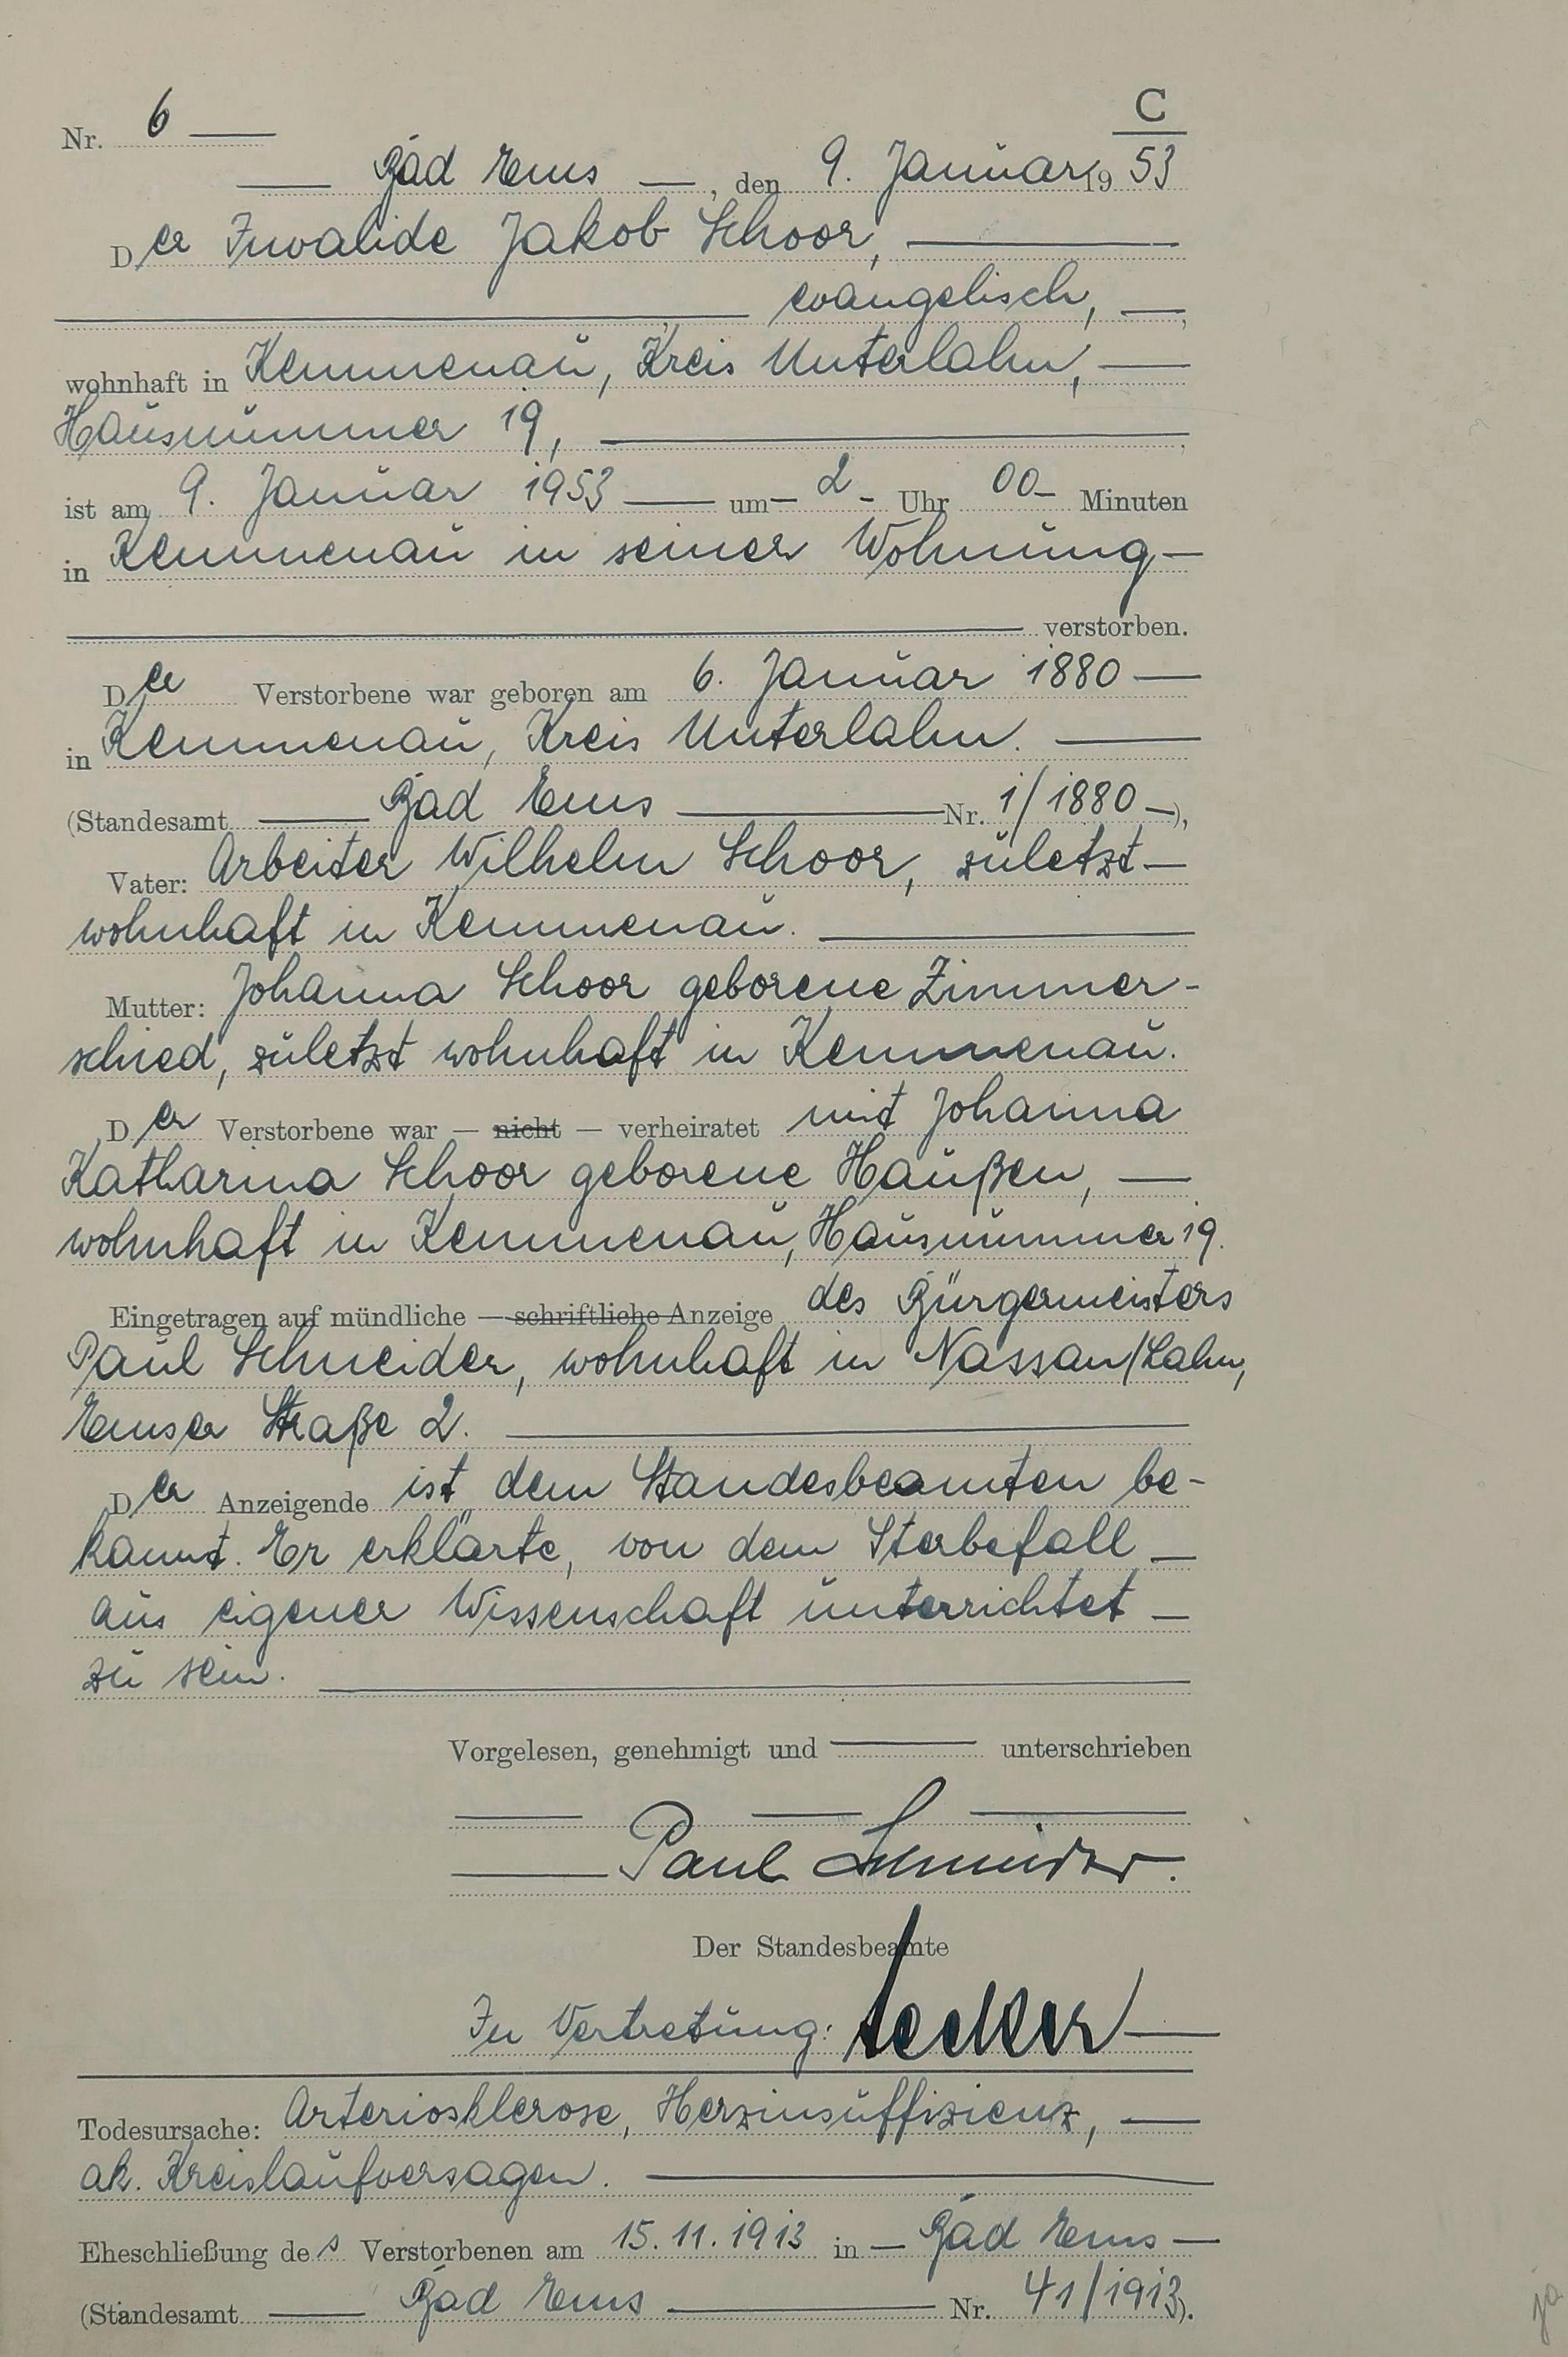 C
Nr. 6
Bad Ems, den 9. Januar 1953
Der Invalide Jakob Schoor,
evangelisch,
wohnhaft in Kemmenau, Kreis Unterlahn,
Hausnummer 19,
ist am 9. Januar 1953 um 2 Uhr 00 Minuten
in Kemmenau in seiner Wohnung
verstorben.
Der Verstorbene war geboren am 6. Januar 1880
in Kemmenau, Kreis Unterlahn.
(Standesamt Bad Ems Nr. 1/1880),
Vater: Arbeiter Wilhelm Schoor, zuletzt
wohnhaft in Kemmenau.
Mutter: Johanna Schoor geborene Zimmer-
schied, zuletzt wohnhaft in Kemmenau.
Der Verstorbene war — nicht — verheiratet mit Johanna
Katharina Schoor geborene Haußen,
wohnhaft in Kemmenau, Hausnummer 19.
Eingetragen auf mündliche — schriftliche Anzeige des Bürgermeisters
Paul Schneider, wohnhaft in Nassau/Lahn,
Emser Straße 2.
Der Anzeigende ist dem Standesbeamten be-
kannt. Er erklärte, von dem Sterbefall
aus eigener Wissenschaft unterrichtet
zu sein.
Vorgelesen, genehmigt und unterschrieben
Paul Schneider.
Der Standesbeamte
In Vertretung:
Todesursache: Arteriosklerose, Herzinsuffizienz,
ak. Kreislaufversagen.
Eheschließung des Verstorbenen am 15.11.1913 in Bad Ems
(Standesamt Bad Ems Nr. 41/1913).
ja